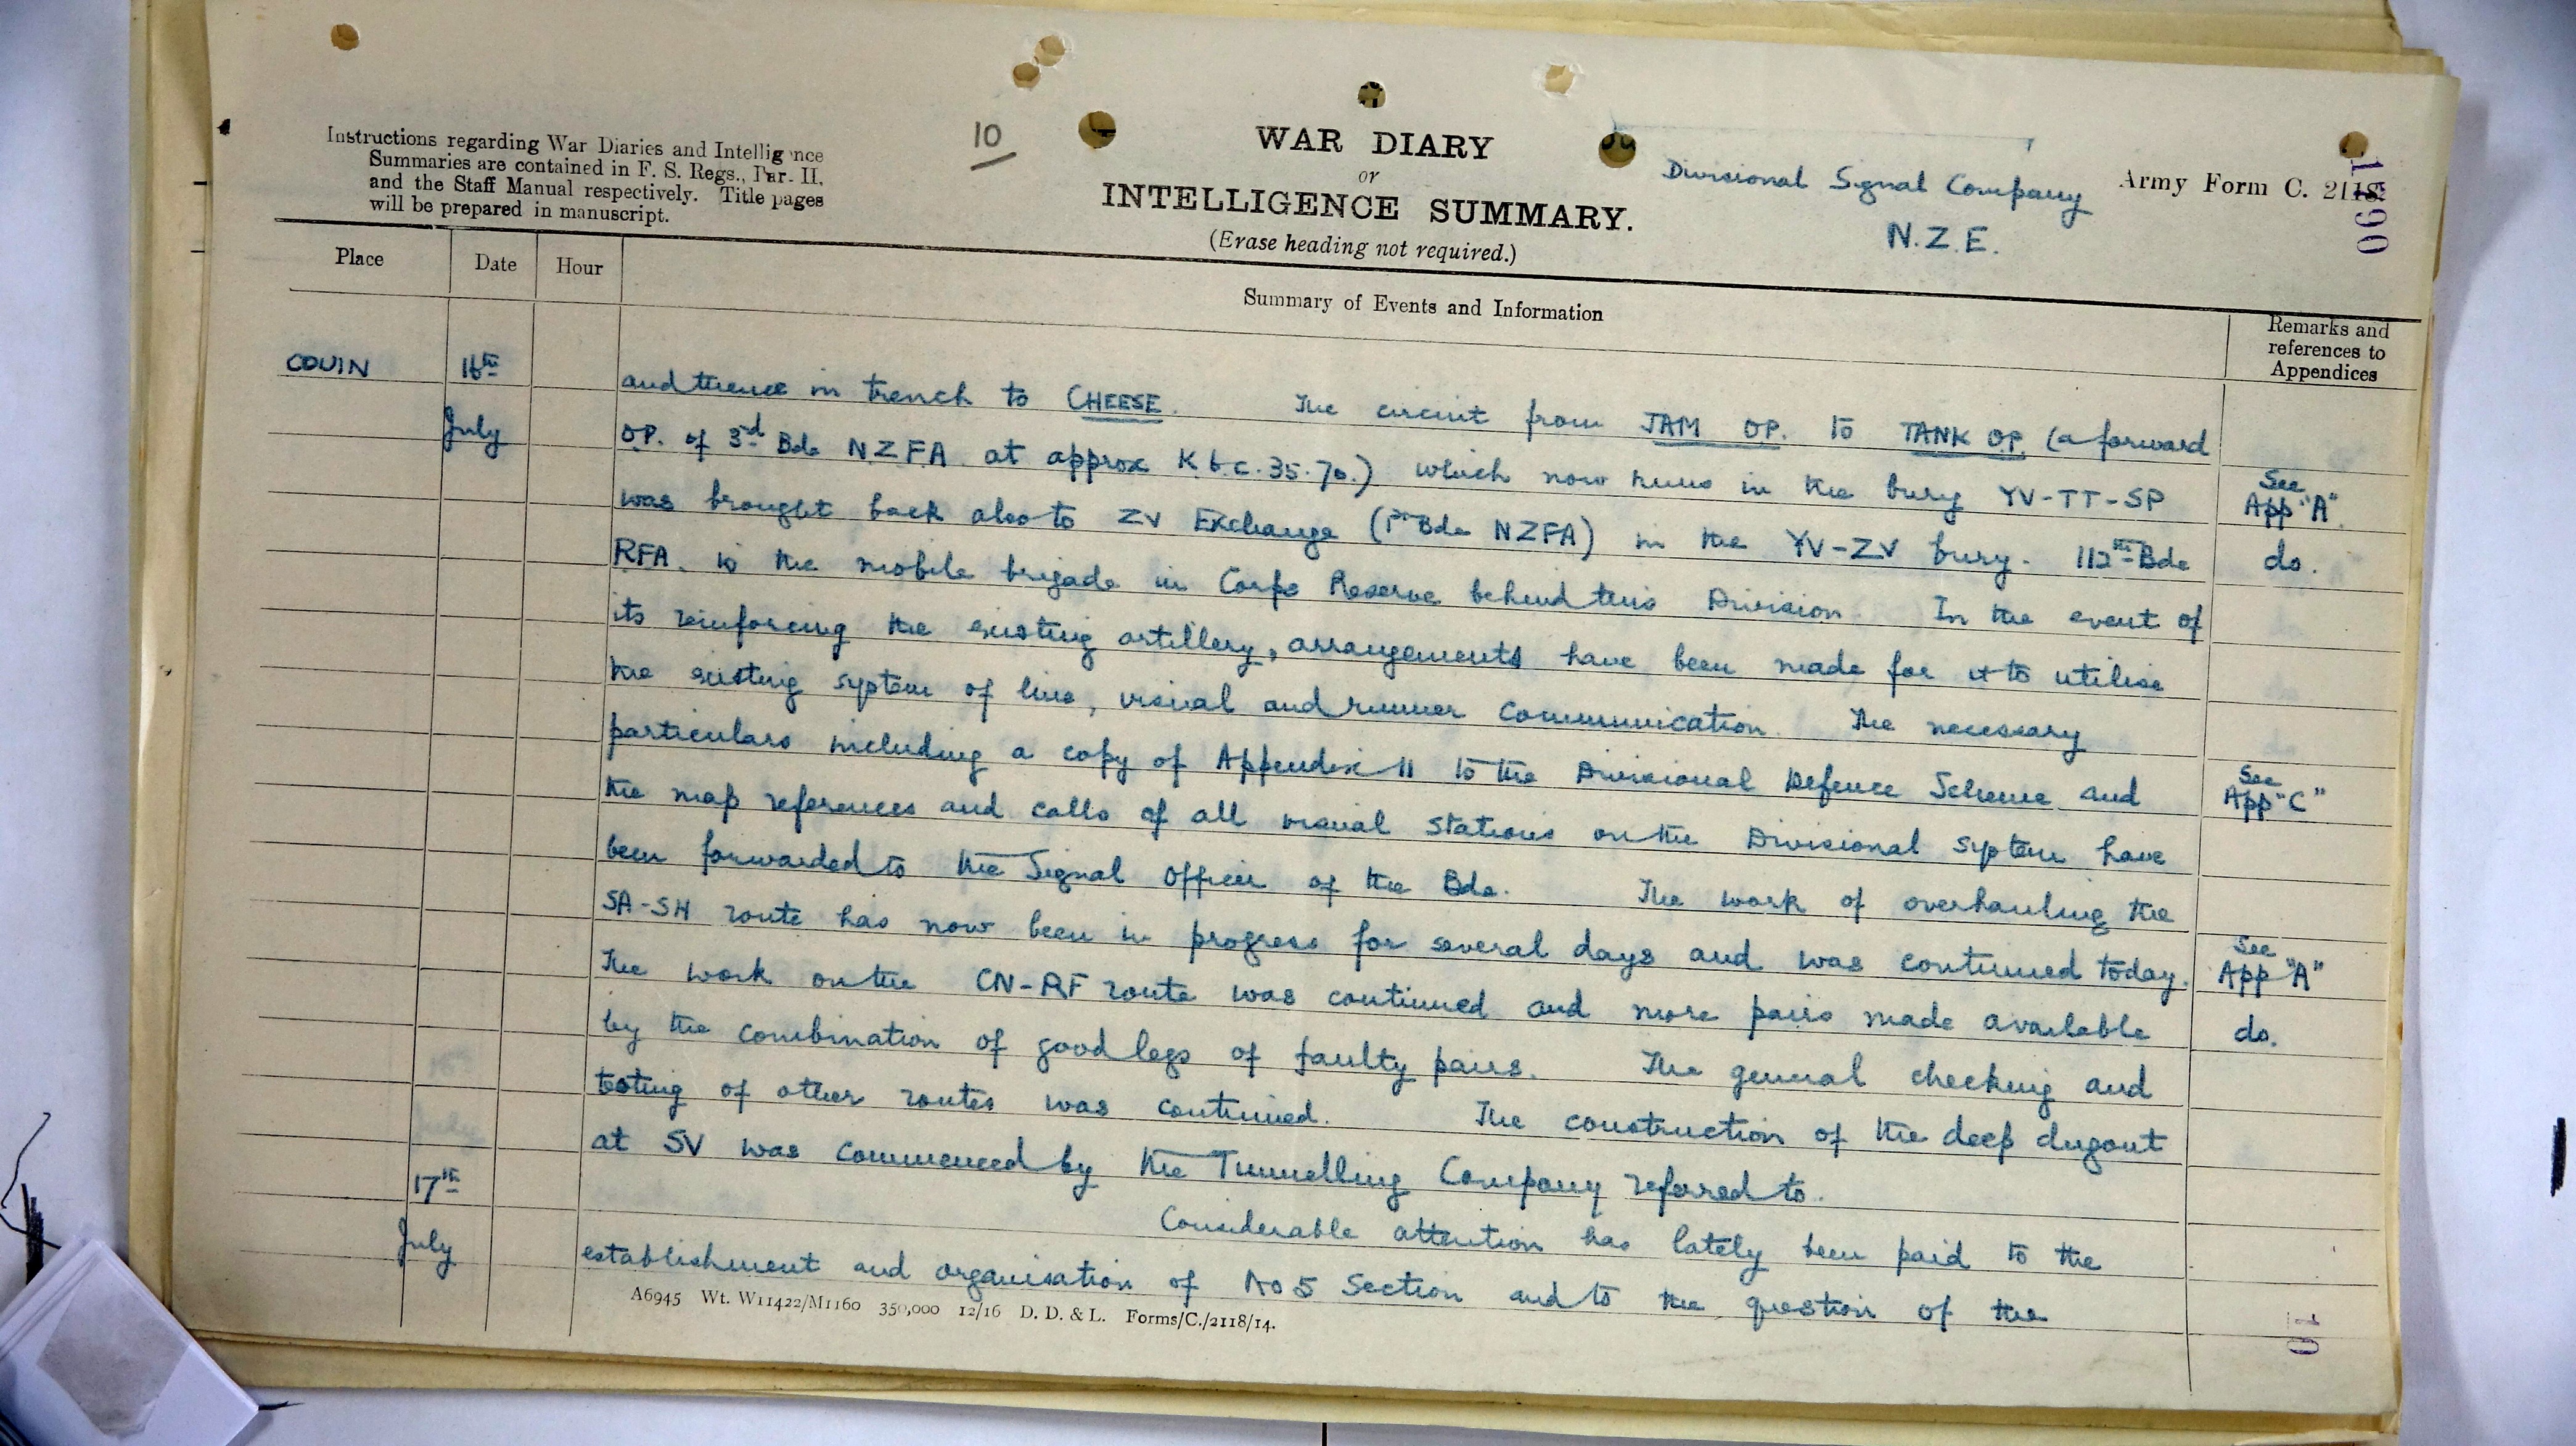 Instructions regarding War Diaries and Intelligence
Summaries are contained in F. S. Regs., Par. II,
and the Staff Manual respectively. Title pages
will be prepared in manuscript.
10
WAR DIARY
or
INTELLIGENCE SUMMARY.
(Erase heading not required.)
Divisional Signal Company
N.Z.E.
Army Form C. 2118.
Place
Date
Hour
Summary of Events and Information
Remarks and
references to
Appendices
COUIN
16th
July
and thence in trench to CHEESE. The circuit from JAM OP. to TANK OP. (a forward
OP. of 3rd Bde NZFA. at approx K6.c.35.70.) which now runs in the bury YV-TT-SP
See
App "A".
was brought back also to ZV Exchange (1st Bde NZFA) in the YV-ZV bury. 112th Bde
do.
RFA. is the mobile brigade in Corps Reserve behind this Division. In the event of
its reinforcing the existing artillery, arrangements have been made for it to utilise
the existing system of line, visual and runner communication. The necessary
particulars including a copy of Appendix 11 to the Divisional Defence Scheme and
See
App "C"
the map references and calls of all visual stations on the Divisional system have
been forwarded to the Signal Officer of the Bde. The work of overhauling the
SA-SH route has now been in progress for several days and was continued today.
See
App "A"
The work on the CN-RF route was continued and more pairs made available
do.
by the combination of good legs of faulty pairs. The general checking and
testing of other routes was continued. The construction of the deep dugout
at SV was commenced by the Tunnelling Company referred to.
17th
July
Considerable attention has lately been paid to the
establishment and organisation of No 5 Section and to the question of the
A6945 Wt. W11422/M1160 350,000 12/16 D. D. & L. Forms/C./2118/14.
10